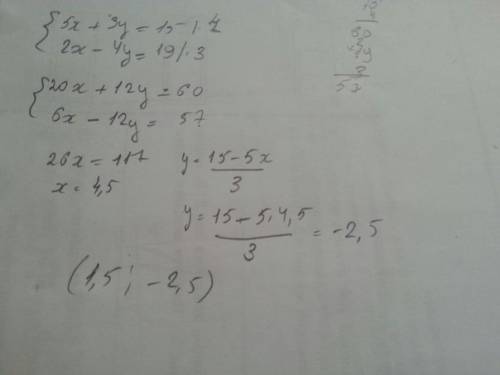 5x + 3y = 15 | · 4
2x - 4y = 19 | · 3
20x + 12y = 60
6x - 12y = 57
26x = 117 y = 15-5x / 3
x = 4,5
y = 15 - 5·4,5 / 3 = -2,5
(1,5; -2,5)
60
57